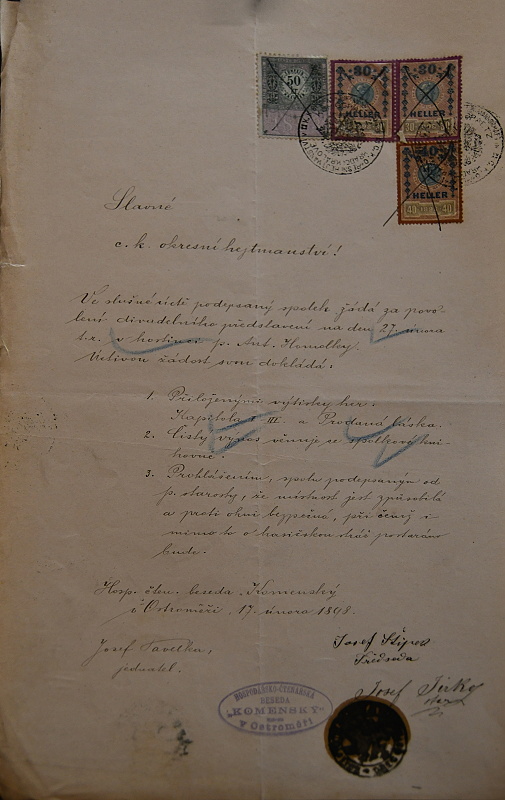 50
80
HELLER
80
HELLER
40
HELLER
40 40
Slavné
c. k. okresní hejtmanství!
Ve slušné úctě podepsaný spolek žádá za povo-
lení divadelního představení na den 27. února
t.r. v hostinci p. Ant. Homolky.
Uctivou žádost svou dokládá:
1. Přiloženými výtisky her.
Kapitola I-III. a Prodaná láska.
2. Čistý výnos věnuje se spolkové kni-
hovně.
3. Prohlášením, spolu podepsaným od
p. starosty, že místnost jest způsobilá
a proti ohni bezpečná, při čemž i
mimo to o hasičskou stráž postaráno
bude.
Hosp. čten. beseda „Komenský"
v Ostroměři, 17. února 1898.
Josef
jednatel.
Josef
Předseda
Josef
HOSPODÁŘSKO-ČTENÁŘSKÁ
BESEDA
„KOMENSKÝ"
v Ostroměři